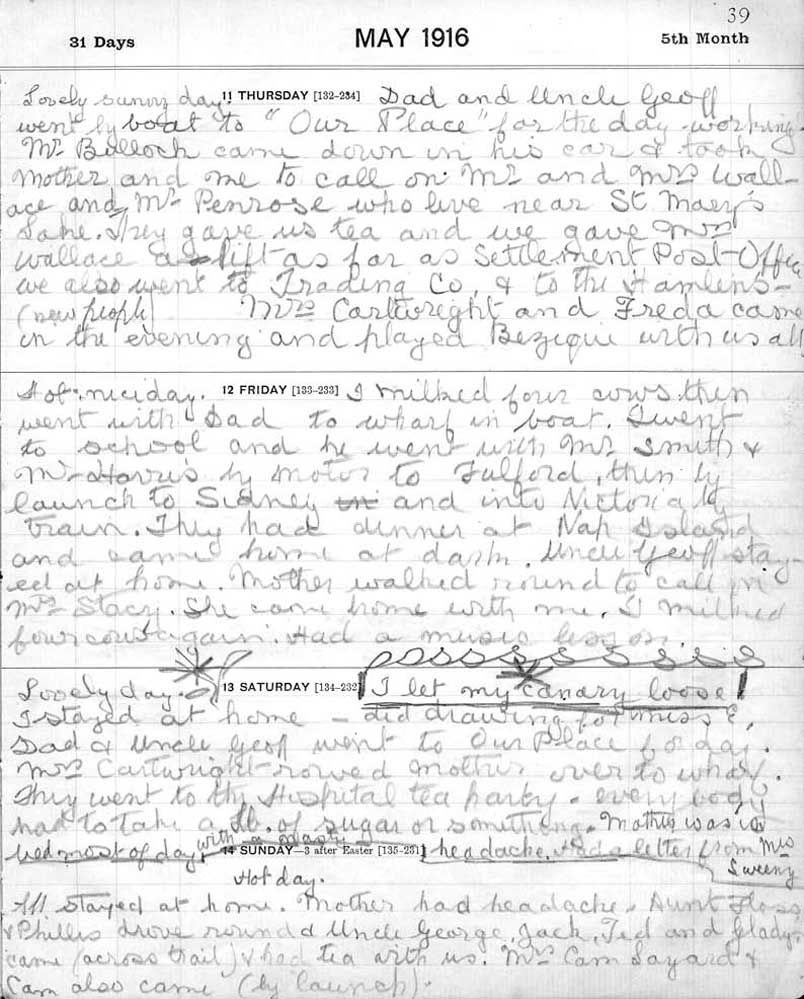 39
31 Days MAY 1916 5th Month
Lovely sunny day. 11 THURSDAY [132-234] Dad and Uncle Geoff
went by boat to "Our Place" for the day working
Mr Bullock came down in his car & took
Mother and me to call on Mr and Mrs Wall-
ace and Mr Penrose who live near St Mary's
Lake. They gave us tea and we gave Mrs
Wallace a lift as far as Settlement Post-Office
we also went to Trading Co, & to the Hamlens-
(new people) Mrs Cartwright and Freda came
in the evening and played Bezique with us all
Hot nice day. 12 FRIDAY [133-233] I milked four cows then
went with Dad to wharf in boat. I went
to school and he went with Mr Smith &
Mr Harris by motor to Fulford, then by
launch to Sidney and into Victoria by
train. They had dinner at Nap Island
and came home at dark. Uncle Geoff stay-
ed at home. Mother walked round to call on
Mrs Stacy. She came home with me. I milked
four cows again. Had a music lesson.
Lovely day. 13 SATURDAY [134-232] I let my canary loose
I stayed at home - did drawing for Miss E,
Dad & Uncle Geoff went to Our Place for day.
Mrs Cartwright rowed Mother over to wharf.
They went to the Hospital tea party - every body
had to take a lb. of sugar or something. Mother was in
bed most of day with a nasty 14 SUNDAY—3 after Easter [135-231] headache. Had a letter from Mrs
Sweeny
Hot day.
All stayed at home. Mother had headache. Aunt Floss
& Phillis drove round & Uncle George, Jack, Ted and Gladys
came (across trail) & had tea with us. Mrs Cam Layard &
Cam also came (by launch).